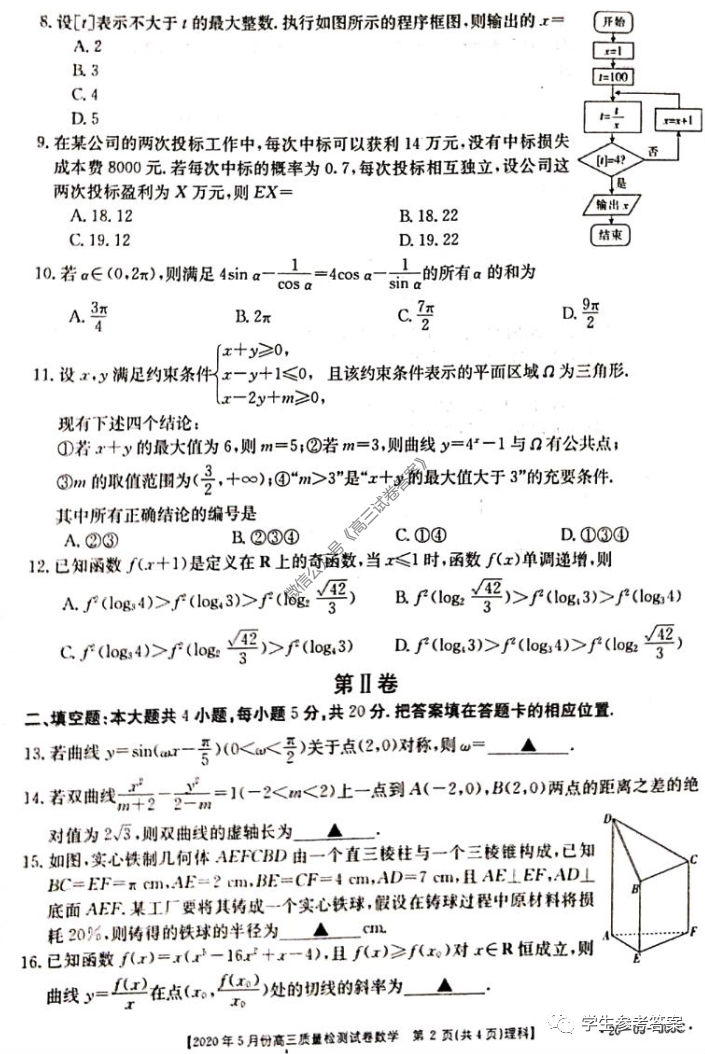 8. 设[t]表示不大于 t 的最大整数. 执行如图所示的程序框图,则输出的 x=
A. 2
B. 3
C. 4
D. 5
开始
x=1
t=100
t=t/x
x=x+1
[t]=4?
否
是
输出 x
结束
9. 在某公司的两次投标工作中,每次中标可以获利 14 万元,没有中标损失
成本费 8000 元. 若每次中标的概率为 0.7,每次投标相互独立,设公司这
两次投标盈利为 X 万元,则 EX=
A. 18.12 B. 18.22
C. 19.12 D. 19.22
10. 若 α∈(0,2π),则满足 4sin α−1/cos α=4cos α−1/sin α的所有 α 的和为
A. 3π/4 B. 2π C. 7π/2 D. 9π/2
11. 设 x,y 满足约束条件{x+y≥0, x−y+1≤0, x−2y+m≥0, 且该约束条件表示的平面区域 Ω 为三角形.
现有下述四个结论:
①若 x+y 的最大值为 6,则 m=5;②若 m=3,则曲线 y=4ˣ−1 与 Ω 有公共点;
③m 的取值范围为(3/2,+∞);④“m>3”是“x+y 的最大值大于 3”的充要条件.
其中所有正确结论的编号是
A. ②③ B. ②③④ C. ①④ D. ①③④
12. 已知函数 f(x+1)是定义在 R 上的奇函数,当 x≤1 时,函数 f(x)单调递增,则
A. f²(log₃4)>f²(log₄3)>f²(log₂ √42/3) B. f²(log₂ √42/3)>f²(log₄3)>f²(log₃4)
C. f²(log₃4)>f²(log₂ √42/3)>f²(log₄3) D. f²(log₄3)>f²(log₃4)>f²(log₂ √42/3)
微信公众号《高三试卷答案》
第Ⅱ卷
二、填空题:本大题共 4 小题,每小题 5 分,共 20 分. 把答案填在答题卡的相应位置.
13. 若曲线 y=sin(ωx−π/5)(0<ω<π/2)关于点(2,0)对称,则 ω=▲.
14. 若双曲线x²/(m+2)−y²/(2−m)=1(−2<m<2)上一点到 A(−2,0),B(2,0)两点的距离之差的绝
对值为 2√3,则双曲线的虚轴长为▲.
15. 如图,实心铁制几何体 AEFCBD 由一个直三棱柱与一个三棱锥构成,已知
BC=EF=π cm,AE=2 cm,BE=CF=4 cm,AD=7 cm,且 AE⊥EF,AD⊥
底面 AEF. 某工厂要将其铸成一个实心铁球,假设在铸球过程中原材料将损
耗 20%,则铸得的铁球的半径为▲cm.
D
C
B
A
F
E
16. 已知函数 f(x)=x(x³−16x²+x−4),且 f(x)≥f(x₀)对 x∈R 恒成立,则
曲线 y=f(x)/x在点(x₀,f(x₀)/x₀)处的切线的斜率为▲.
学生参考答案
【2020 年 5 月份高三质量检测试卷数学 第 2 页(共 4 页)理科】